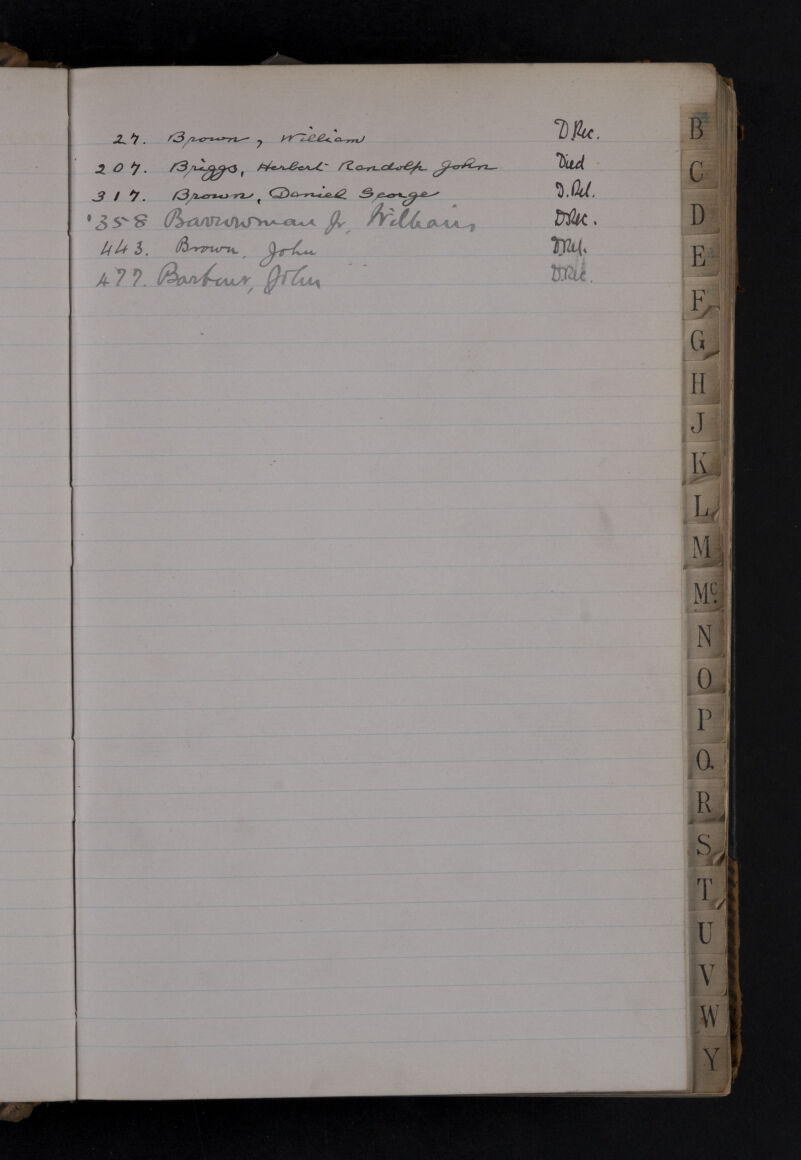 27. Brown, William D Rec.
207. Briggs, Herbert Randolph John Died
317. Brown, Daniel George D. Rel.
358 Barrowman Jr, William D Rec.
443. Brown, John
477. Barbour, John D. Rec.
B
C
D
E
F
G
H
J
K
L
M
Mc.
N
O
P
Q.
R
S
T
U
V
W
Y